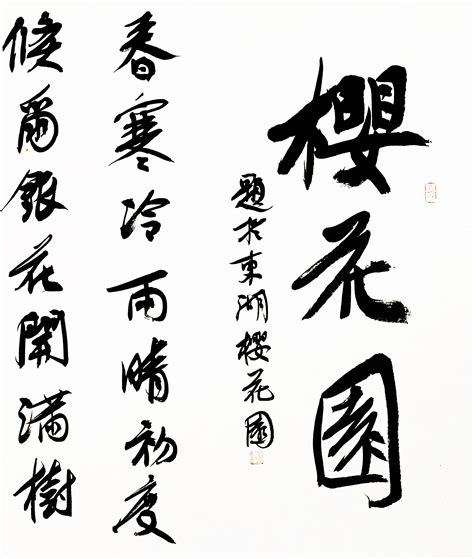 櫻花園
題於東湖櫻花園
春寒冷雨晴初度
倏爾銀花開滿樹